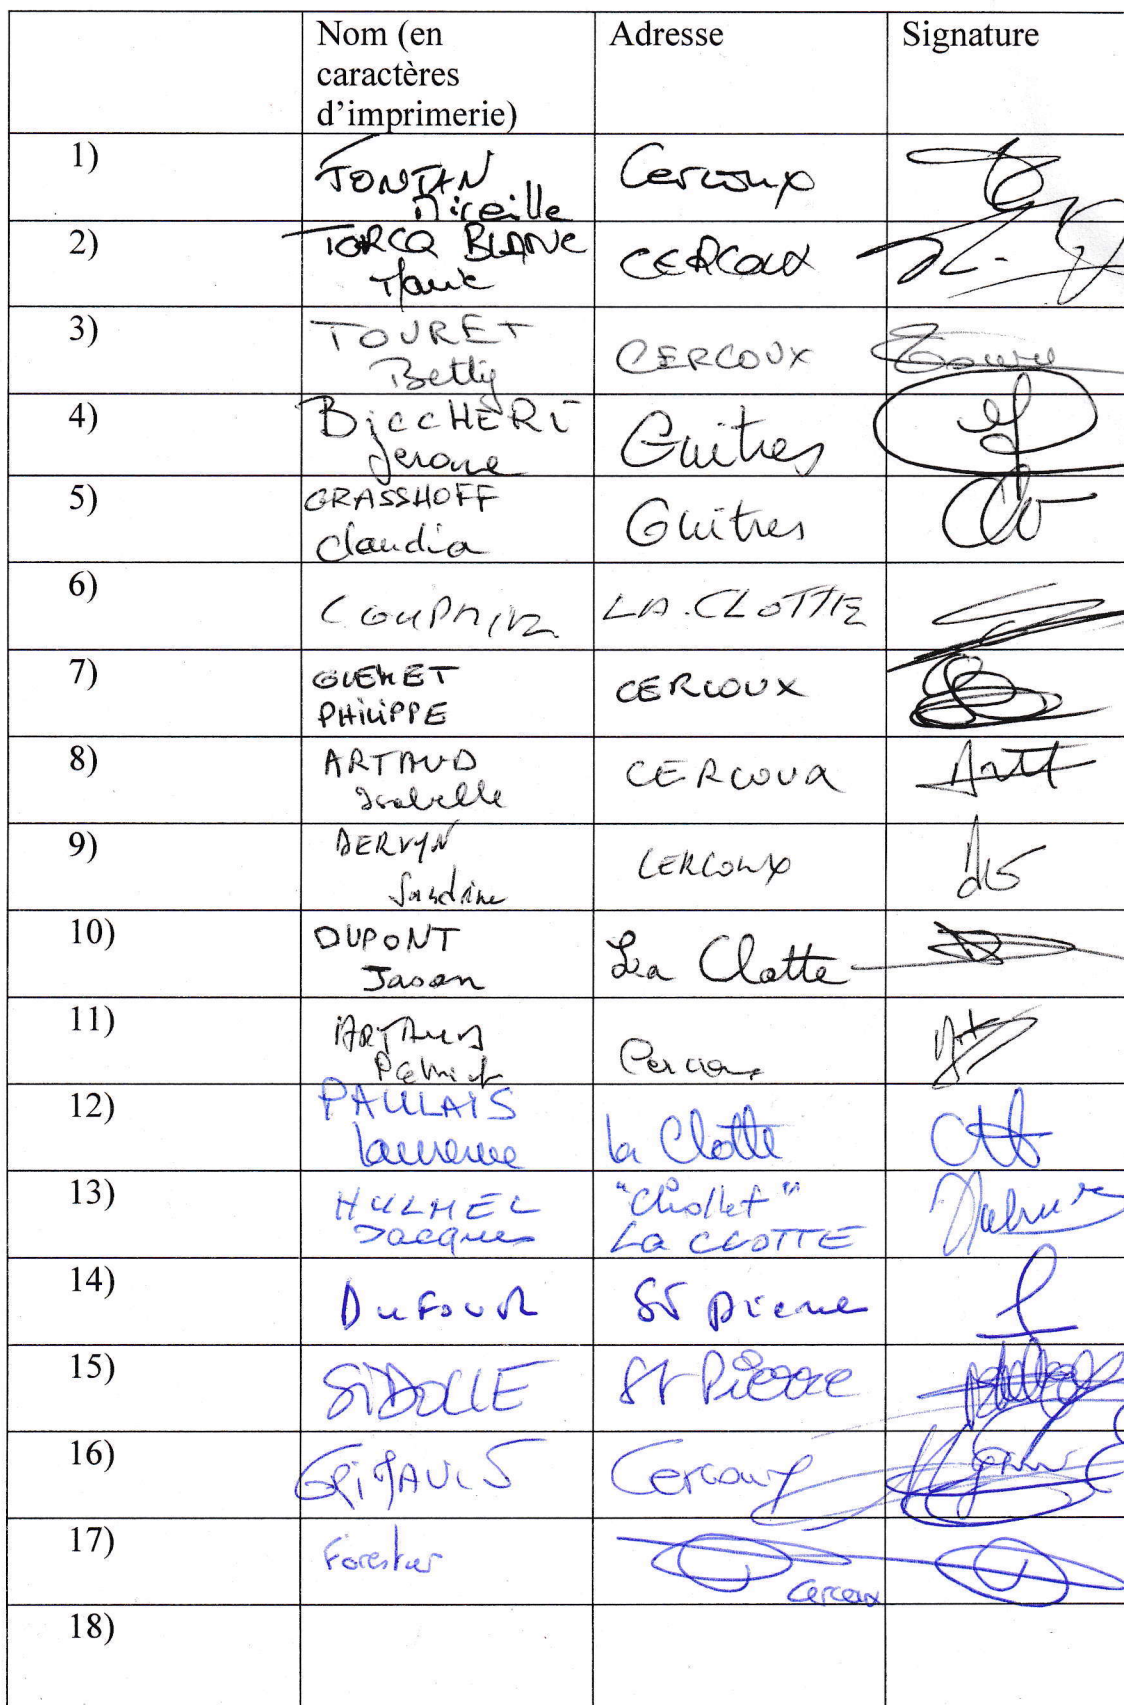 Nom (en
caractères
d’imprimerie)
Adresse
Signature
1)
FONTAN
Mireille
Cercoux
2)
TORCQ BLANC
Marie
CERCOUX
3)
TOURET
Betty
CERCOUX
4)
BiccHERI
Jerome
Guitres
5)
GRASSHOFF
Claudia
Guitres
6)
LA.CLOTTE
7)
PHILIPPE
CERCOUX
8)
ARTAUD
Isabelle
CERCOUX
9)
DERVYN
Sandrine
CERCOUX
10)
DUPONT
Jason
La Clotte
11)
ARTAUD
Patrick
Cercoux
12)
PAULAIS
Laurence
la Clotte
13)
HULMEL
Jacques
"Chollet"
La CLOTTE
14)
DuFour
St Pierre
15)
SiDOLLE
St Pierre
16)
Cercoux
17)
Forestier
Cercoux
18)